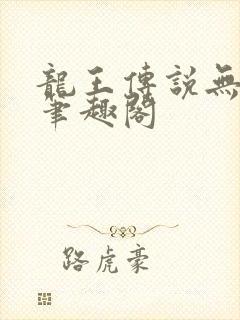 龍王傳説無
筆趣閣
路虎豪